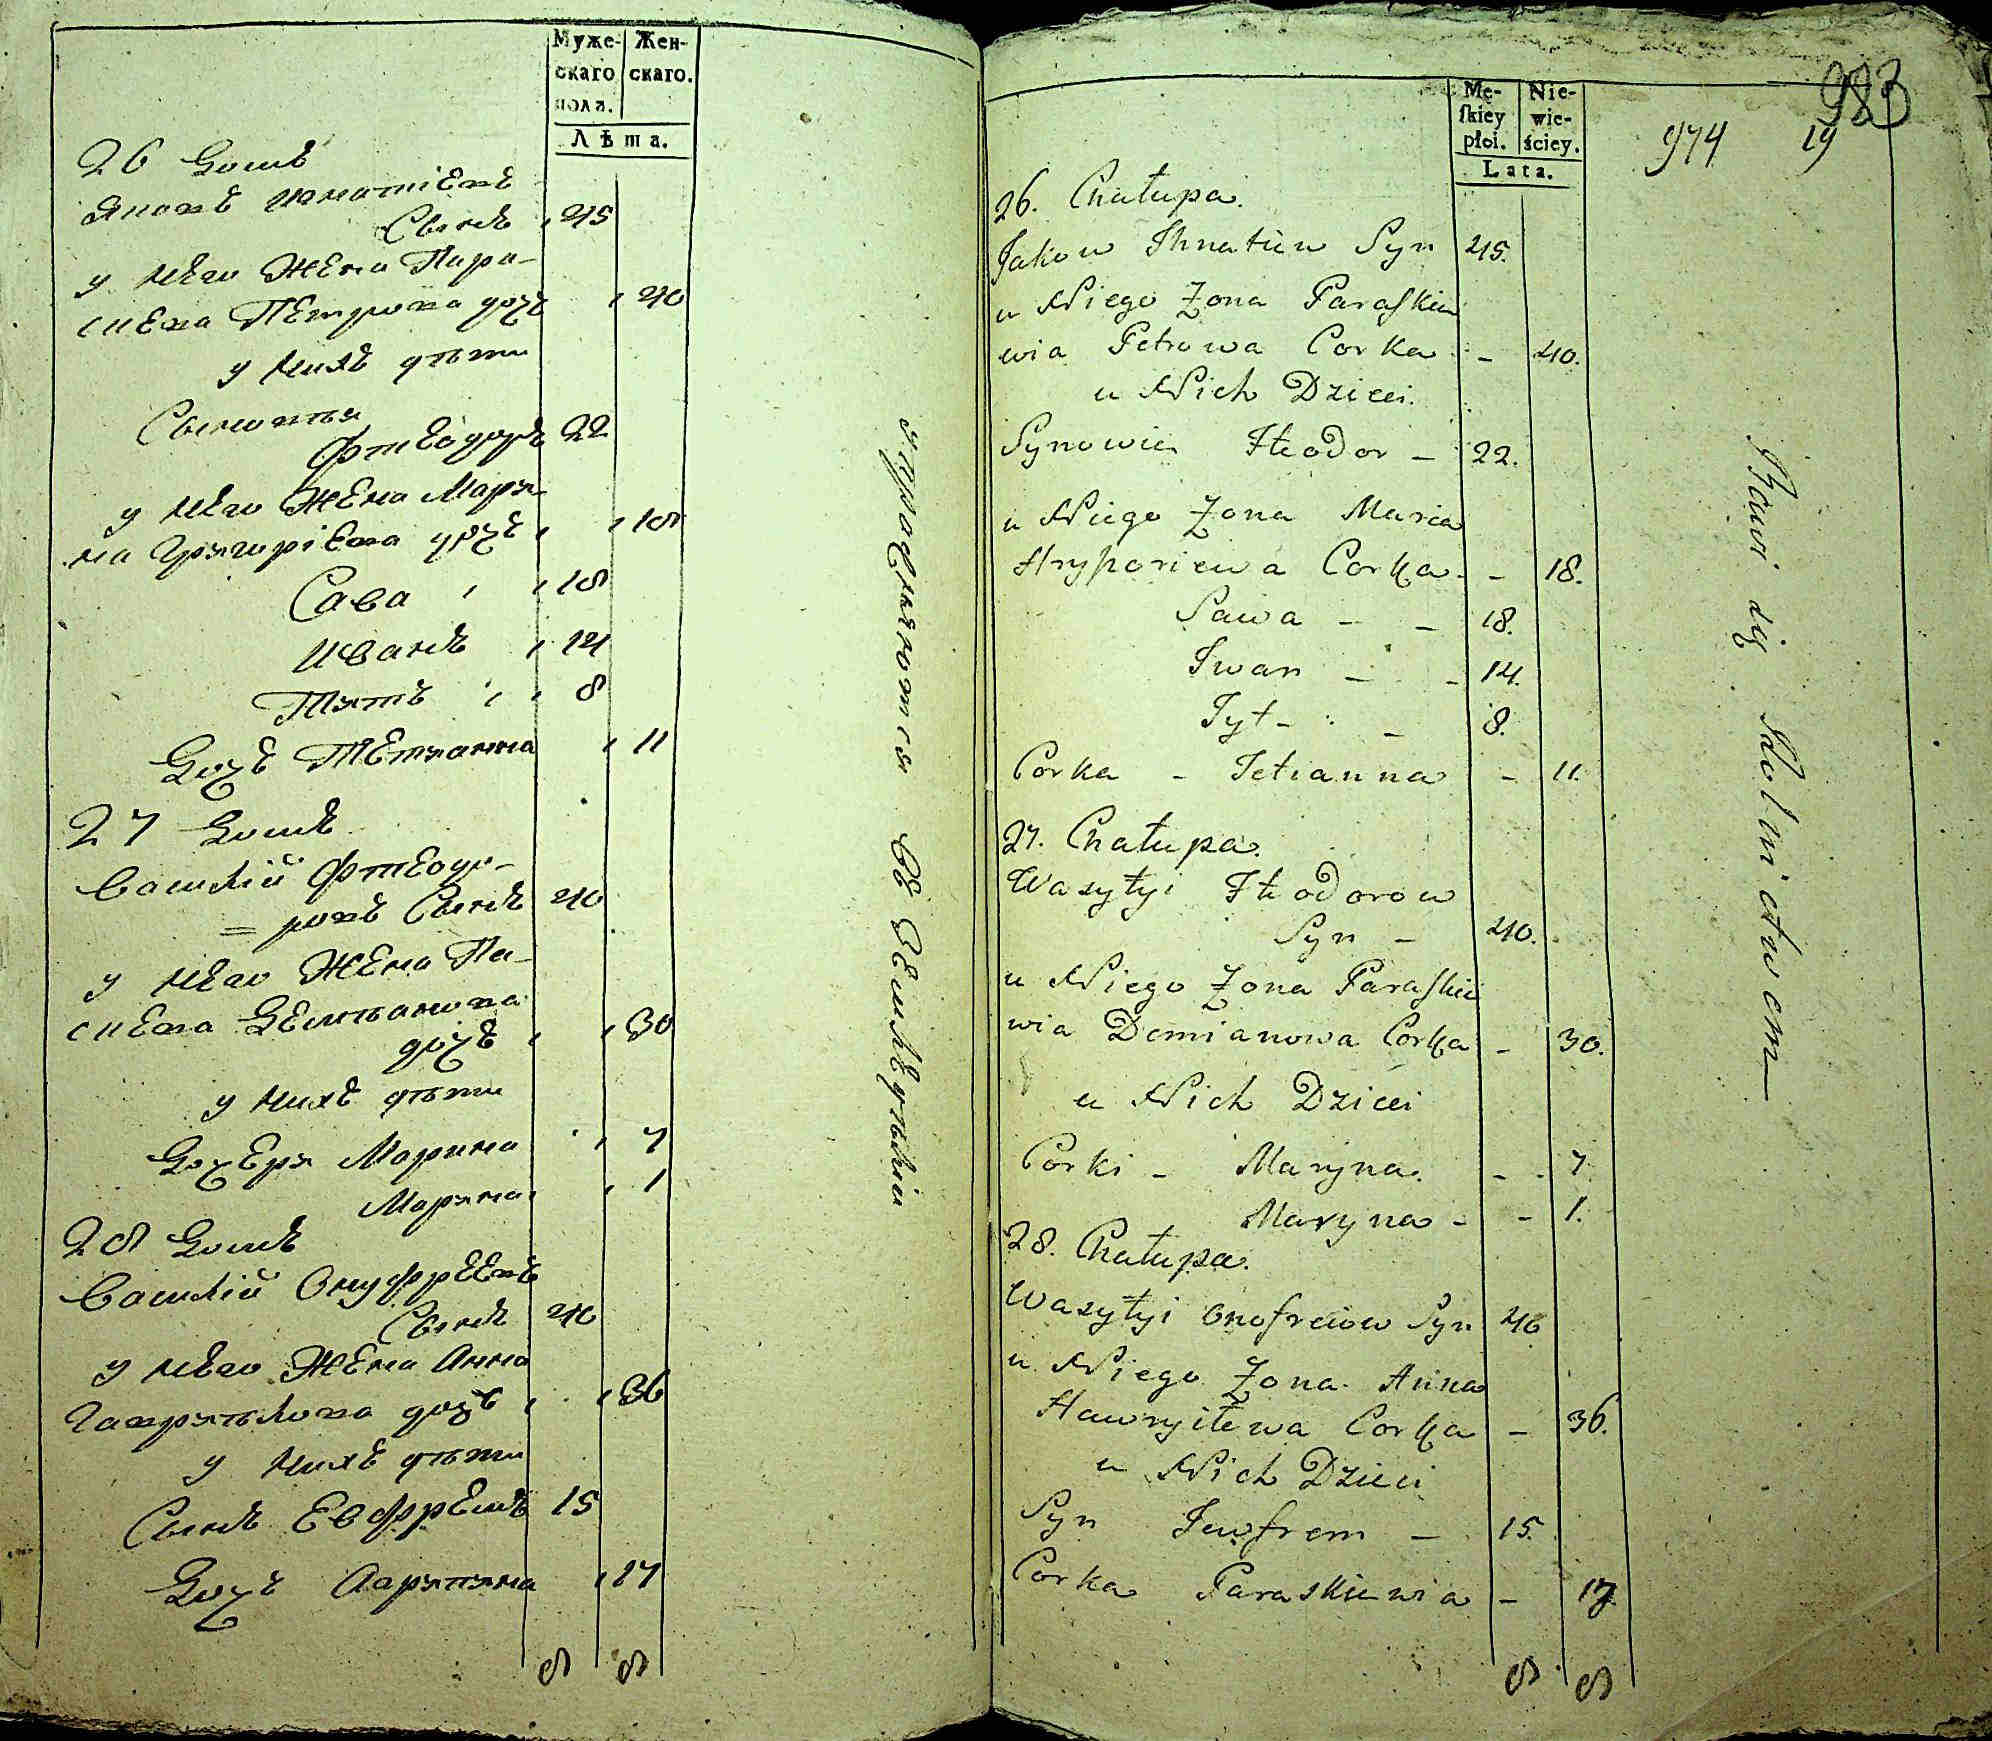 Муже-
скаго
пола.
Жен-
скаго.
Лѣта.
26 Домъ
Яковъ Игнатіевъ
Сынъ 45
у него Жена Пара-
скева Петрова дочь 40
у нихъ дѣти
Сыновья
Фтеодоръ 22
у него Жена Маря-
на Грыгоріева дочь 18
Сава 18
Иванъ 14
Тытъ 8
Дочь Тетяанна 11
27 Домъ
Василій Фтеодо-
=ровъ Сынъ 40
у него Жена Па-
скева Демьянова
дочь 30
у нихъ дѣти
Дочеры Марина 7
Марына 1
28 Домъ
Василій Онуфреевъ
Сынъ 40
у него Жена Анна
Гаврылова дочь 36
у нихъ дѣти
Сынъ Евфремъ 15
Дочь 17
8 8
въ Земледѣліи
Mę-
skiey
płci.
Nie-
wie-
ściey.
Lata.
983
974 19
26. Chałupa.
Jakow Ihnatiew Syn 45.
u Niego Żona Paraskie
wia Petrowa Corka - 40.
u Nich Dzieci.
Synowie Fteodor - 22.
u Niego Żona Maria
Hryhoriewa Corka - - 18.
Sawa - - 18.
Iwan - - 14.
Tyt - - 8.
Corka - Tetianna - 11.
27. Chałupa.
Wasyłyi Fteodorow
Syn - 40.
u Niego Żona Paraskie
wia Demianowa Corka - 30.
u Nich Dzieci
Corki - Maryna. - - 7
Maryna - - 1.
28. Chałupa.
Wasyłyi Onofreiow Syn 40
u Niego Żona Anna
Hawryłewa Corka - 36.
u Nich Dzieci
Syn Jewfrem - 15.
Corka Paraskiewia - 17.
8 8
Bawi się Rolnictwem